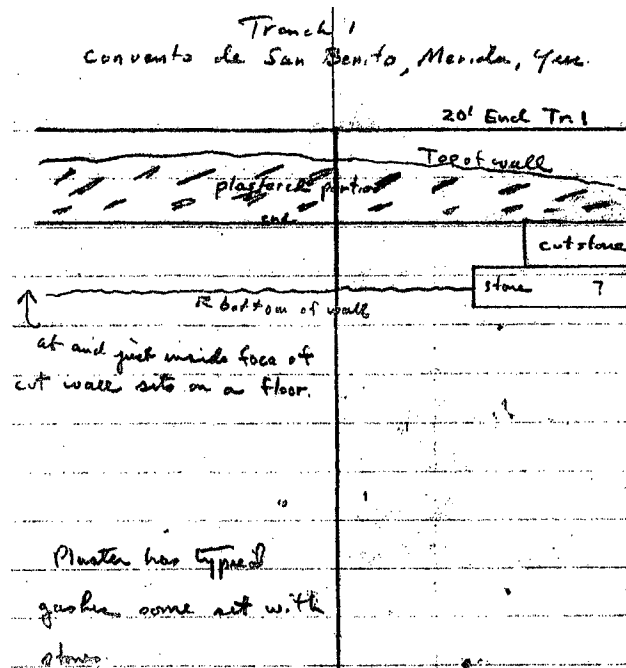 Trench 1
Convento de San Benito, Merida, Yuc.
20' End Tr. 1
Top of wall
plastered portion
end
cut stone
stone ?
bottom of wall
at and just inside face of
cut wall sits on a floor.
Plaster has typical
gashes some set with
stones